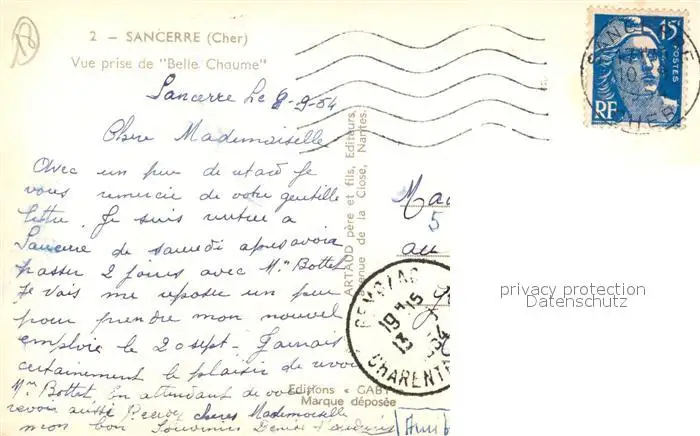 18
2 — SANCERRE (Cher)
Vue prise de "Belle Chaume"
Sancerre le 8-9-54
Chère Mademoiselle
Avec un peu de retard je
vous remercie de votre gentille
lettre. Je suis rentrée a
Sancerre de samedi apres avoir
passer 2 jours avec Mme Bottet
Je vais me reposer un peu
pour prendre mon nouvel
emploie le 20 sept. J'aurais
certainement le plaisir de
Mme Bottet, En attendant de vous
revoir aussi Recevez chères Mademoiselle
mon bon Souvenirs Denise
ARTAUD père et fils, Editeurs,
avenue de la Close, Nantes.
Editions « GABY
Marque déposée
15F
POSTES
RF
CHER
5
au
19H15
13
CHARENTE
privacy protection
Datenschutz